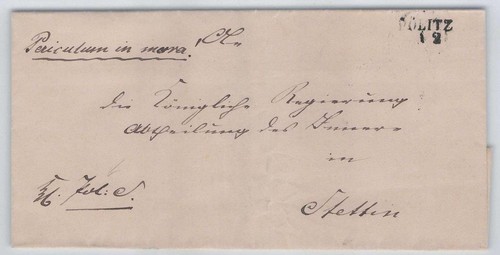 PÖLITZ
1 2
Periculum in mora. An
die Königliche Regierung
Abtheilung des Innern
in
Pol: S.
Stettin